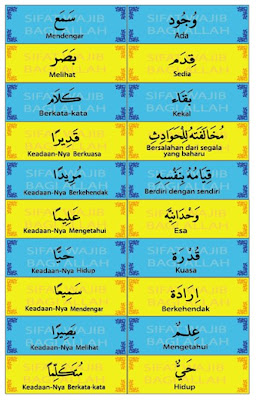 وُجُود
Ada
قِدَم
Sedia
بَقَاء
Kekal
مُخَالَفَتُهُ لِلْحَوَادِثِ
Bersalahan dari segala
yang baharu
قِيَامُهُ بِنَفْسِهِ
Berdiri dengan sendiri
وَحْدَانِيَّة
Esa
قُدْرَة
Kuasa
اِرَادَة
Berkehendak
عِلْمٌ
Mengetahui
حَيٌّ
Hidup
سَمَع
Mendengar
بَصَر
Melihat
كَلَام
Berkata-kata
قَدِيرًا
Keadaan-Nya Berkuasa
مُرِيدًا
Keadaan-Nya Berkehendak
عَلِيمًا
Keadaan-Nya Mengetahui
حَيًّا
Keadaan-Nya Hidup
سَمِيعًا
Keadaan-Nya Mendengar
بَصِيرًا
Keadaan-Nya Melihat
مُتَكَلِّمًا
Keadaan-Nya Berkata-kata